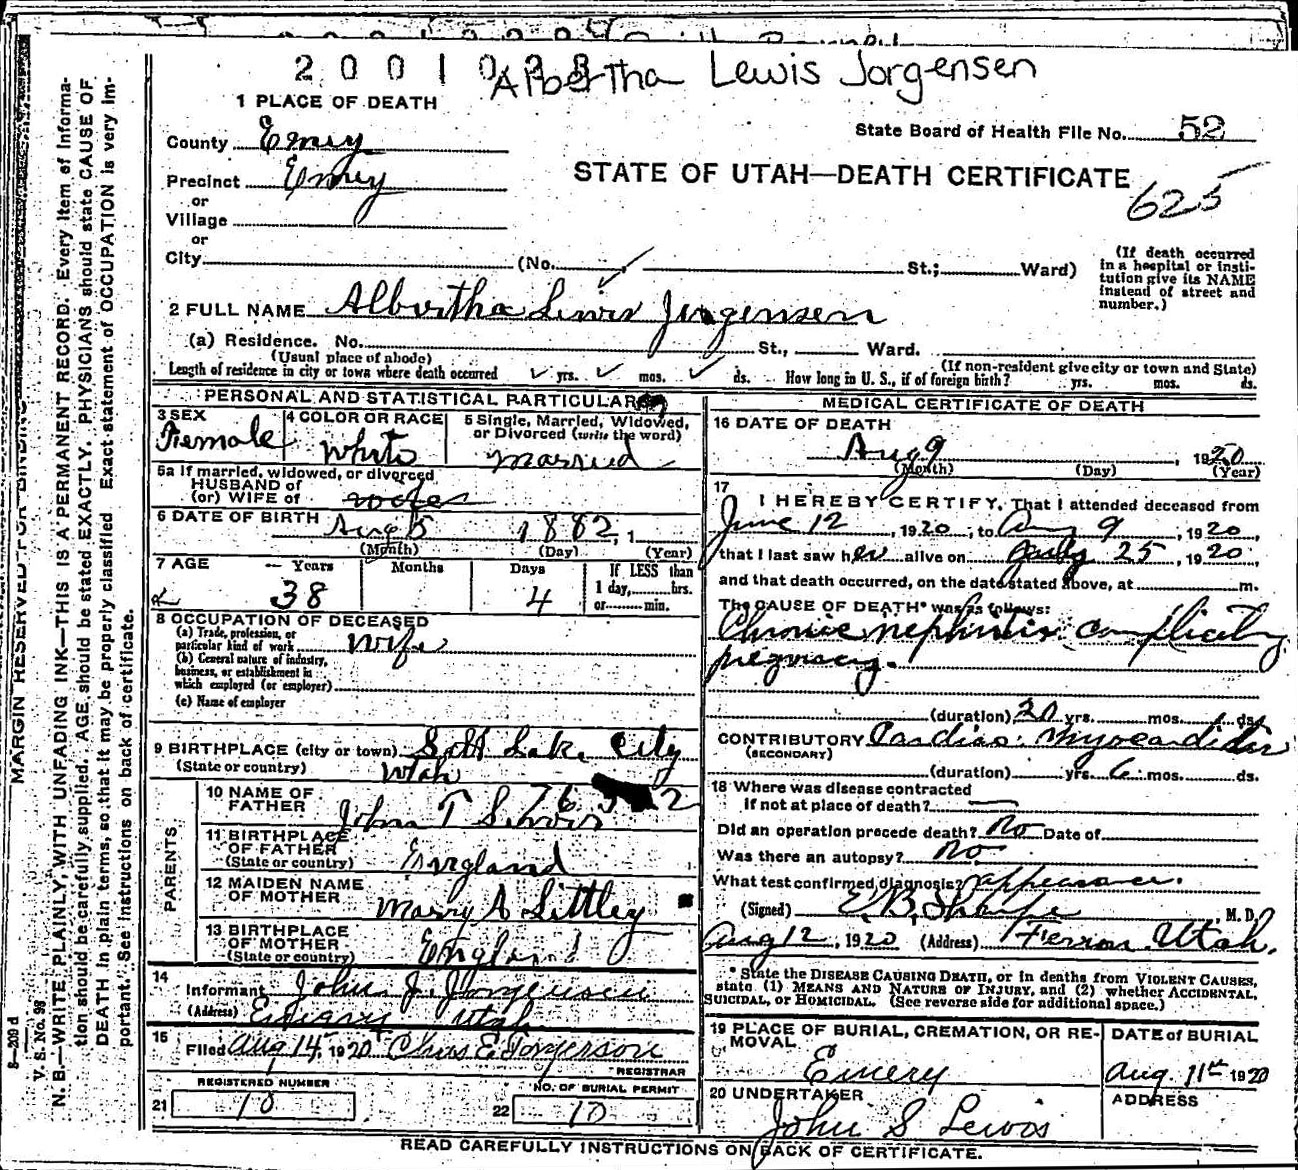 2 0 0 1 0
Albertha Lewis Jorgensen
1 PLACE OF DEATH
State Board of Health File No. 52
County Emery
STATE OF UTAH—DEATH CERTIFICATE
Precinct Emery
625
or
Village
or
City (No. St.; Ward)
(If death occurred in a hospital or institution give its NAME instead of street and number.)
2 FULL NAME Albertha Lewis Jorgensen
(a) Residence. No. St., Ward.
(Usual place of abode) (If non-resident give city or town and State)
Length of residence in city or town where death occurred yrs. mos. ds. How long in U. S., if of foreign birth? yrs. mos. ds.
PERSONAL AND STATISTICAL PARTICULARS
3 SEX 4 COLOR OR RACE 5 Single, Married, Widowed, or Divorced (write the word)
Female White Married
5a If married, widowed, or divorced
HUSBAND of
(or) WIFE of wife
6 DATE OF BIRTH Aug 5 1882, 1
(Month) (Day) (Year)
7 AGE Years Months Days If LESS than 1 day, hrs. or min.
38 4
8 OCCUPATION OF DECEASED
(a) Trade, profession, or particular kind of work wife
(b) General nature of industry, business, or establishment in which employed (or employer)
(c) Name of employer
9 BIRTHPLACE (city or town) Salt Lake City
(State or country) Utah
PARENTS
10 NAME OF FATHER John T Lewis
11 BIRTHPLACE OF FATHER (State or country) England
12 MAIDEN NAME OF MOTHER Mary A Sittley
13 BIRTHPLACE OF MOTHER (State or country) England
14 Informant John J. Jorgensen
(Address) Emery Utah
15 Filed Aug 14, 1920 Chas E. Jorgenson
REGISTRAR
REGISTERED NUMBER NO. OF BURIAL PERMIT
21 10 22 10
MEDICAL CERTIFICATE OF DEATH
16 DATE OF DEATH
Aug 9, 1920
(Month) (Day) (Year)
17 I HEREBY CERTIFY, That I attended deceased from
June 12, 1920, to Aug 9, 1920
that I last saw her alive on July 25, 1920,
and that death occurred, on the date stated above, at m.
The CAUSE OF DEATH* was as follows:
Chronic nephritis complicating
pregnancy.
(duration) 20 yrs. mos. ds.
CONTRIBUTORY Cardiac Myocarditis
(SECONDARY)
(duration) yrs. 6 mos. ds.
18 Where was disease contracted
If not at place of death?
Did an operation precede death? No Date of
Was there an autopsy? No
What test confirmed diagnosis? appearance.
(Signed) E.B. Sharpe, M. D.
Aug 12, 1920 (Address) Ferron Utah.
* State the DISEASE CAUSING DEATH, or in deaths from VIOLENT CAUSES, state (1) MEANS AND NATURE OF INJURY, and (2) whether ACCIDENTAL, SUICIDAL, or HOMICIDAL. (See reverse side for additional space.)
19 PLACE OF BURIAL, CREMATION, OR REMOVAL DATE OF BURIAL
Emery Aug. 11th 1920
20 UNDERTAKER ADDRESS
John S Lewis
READ CAREFULLY INSTRUCTIONS ON BACK OF CERTIFICATE.
MARGIN RESERVED FOR BINDING
N. B.—WRITE PLAINLY, WITH UNFADING INK—THIS IS A PERMANENT RECORD. Every item of informa-
tion should be carefully supplied. AGE should be stated EXACTLY. PHYSICIANS should state CAUSE OF
DEATH in plain terms, so that it may be properly classified. Exact statement of OCCUPATION is very im-
portant. See instructions on back of certificate.
V. S. No. 98